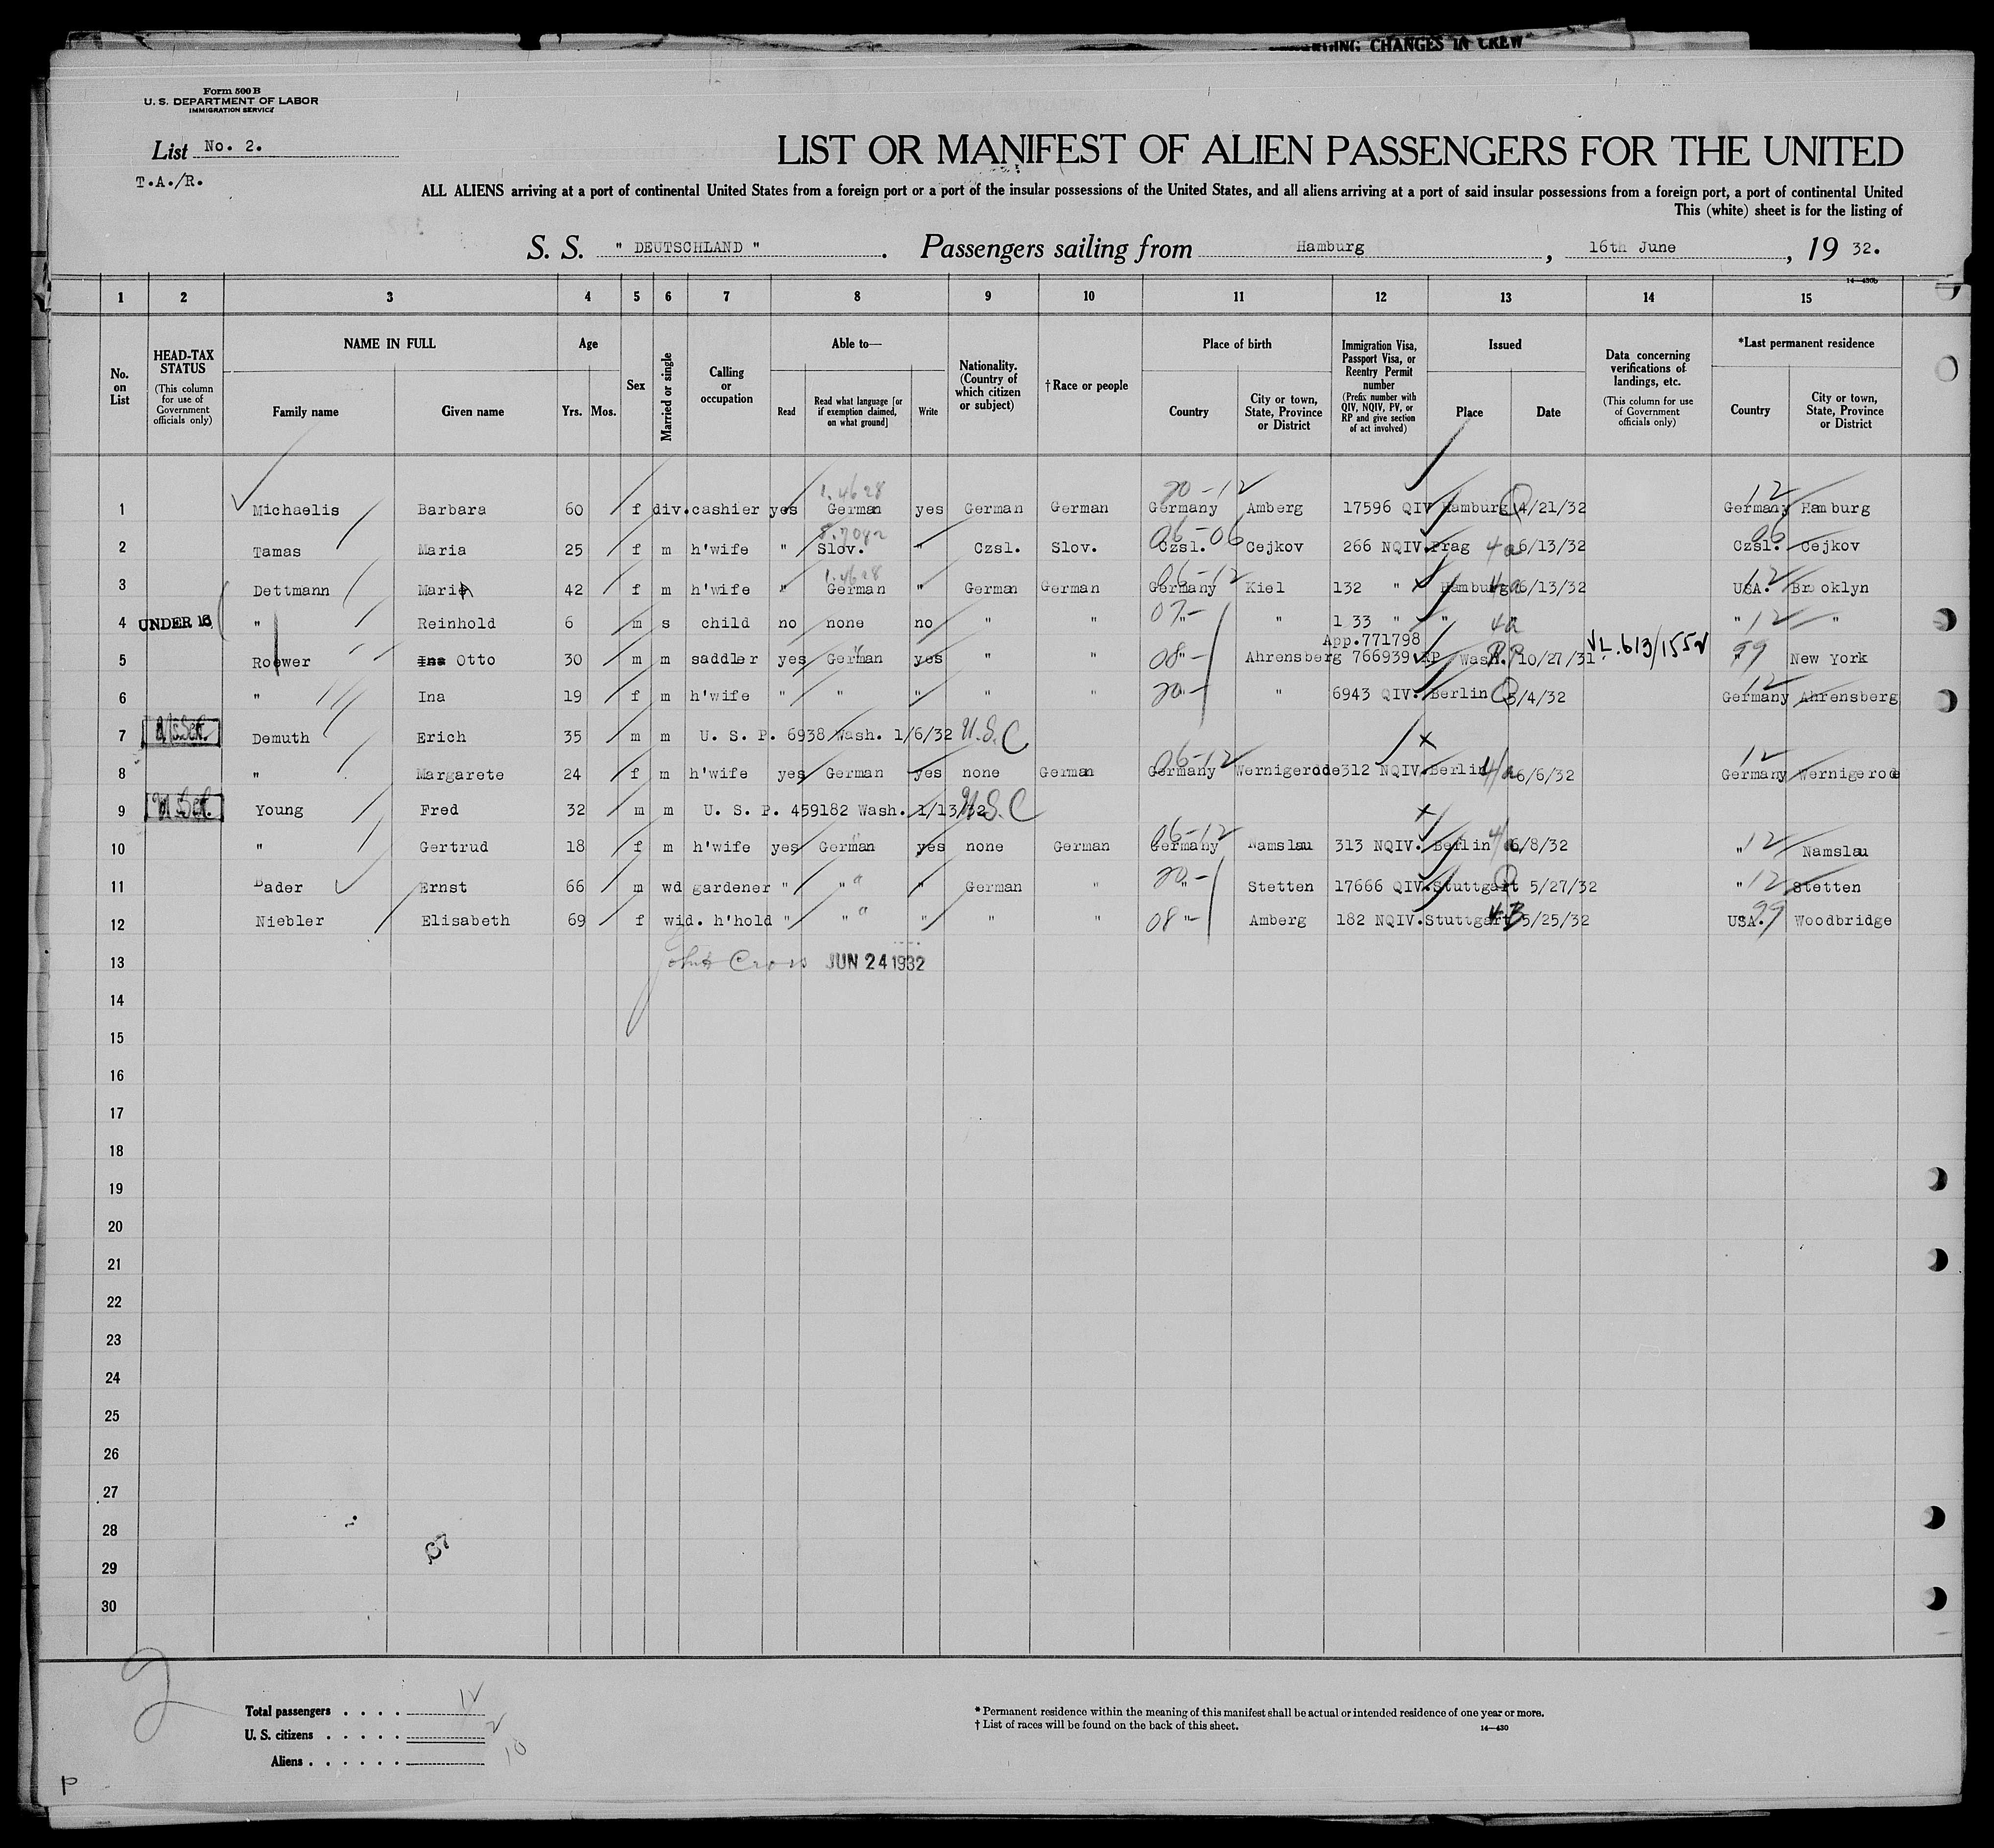 RDING CHANGES IN CREW
Form 500 B
U. S. DEPARTMENT OF LABOR
IMMIGRATION SERVICE
List No. 2.
T.A./R.
LIST OR MANIFEST OF ALIEN PASSENGERS FOR THE UNITED
ALL ALIENS arriving at a port of continental United States from a foreign port or a port of the insular possessions of the United States, and all aliens arriving at a port of said insular possessions from a foreign port, a port of continental United
This (white) sheet is for the listing of
S. S. " DEUTSCHLAND " . Passengers sailing from Hamburg , 16th June , 19 32.
14—430b
1 2 3 4 5 6 7 8 9 10 11 12 13 14 15
No. on List
HEAD-TAX STATUS (This column for use of Government officials only)
NAME IN FULL
Family name Given name
Age
Yrs. Mos.
Sex
Married or single
Calling or occupation
Able to—
Read Read what language [or if exemption claimed, on what ground] Write
Nationality. (Country of which citizen or subject)
† Race or people
Place of birth
Country City or town, State, Province or District
Immigration Visa, Passport Visa, or Reentry Permit number (Prefix number with QIV, NQIV, PV, or RP and give section of act involved)
Issued
Place Date
Data concerning verifications of landings, etc. (This column for use of Government officials only)
*Last permanent residence
Country City or town, State, Province or District
1.4628 20-12 12
1 Michaelis Barbara 60 f div. cashier yes German yes German German Germany Amberg 17596 QIV Hamburg Q 4/21/32 Germany Hamburg
06-06 06
2 Tamas Maria 25 f m h'wife " Slov. " Czsl. Slov. Czsl. Cejkov 266 NQIV. Prag 4a 6/13/32 Czsl. Cejkov
1.4628 06-12 12
3 Dettmann Maria 42 f m h'wife " German " German German Germany Kiel 132 " Hamburg 4a 6/13/32 USA. Brooklyn
4 UNDER 16 " Reinhold 6 m s child no none no " " 07- " " 1 33 " " 4a " " 12 "
App.771798
5 Roewer Ina Otto 30 m m saddler yes German yes " " 08- " Ahrensberg 766939 RP Wash. RP 10/27/31 V.L.613/155 " 99 New York
6 " Ina 19 f m h'wife " " " " " 20- " " 6943 QIV. Berlin Q 5/4/32 12 Germany Ahrensberg
7 Demuth Erich 35 m m U. S. P. 6938 Wash. 1/6/32 U.S.C x
06-12 12
8 " Margarete 24 f m h'wife yes German yes none German Germany Wernigerode 312 NQIV. Berlin 4a 6/6/32 Germany Wernigerode
9 Young Fred 32 m m U. S. P. 459182 Wash. 1/13/32 U.S.C x
06-12
10 " Gertrud 18 f m h'wife yes German yes none German Germany Namslau 313 NQIV. Berlin 4a 6/8/32 " 12 Namslau
11 Bader Ernst 66 m wd gardener " " " German " 20- " Stetten 17666 QIV. Stuttgart Q 5/27/32 " 12 Stetten
12 Niebler Elisabeth 69 f wid. h'hold " " " " " 08 " - Amberg 182 NQIV. Stuttgart 4B 5/25/32 USA. 99 Woodbridge
13 John Cross JUN 24 1932
14
15
16
17
18
19
20
21
22
23
24
25
26
27
28
29
30
67
2
Total passengers . . . . 12
U. S. citizens . . . . . 2
Aliens . . . . . . 10
* Permanent residence within the meaning of this manifest shall be actual or intended residence of one year or more.
† List of races will be found on the back of this sheet.
14—430
P